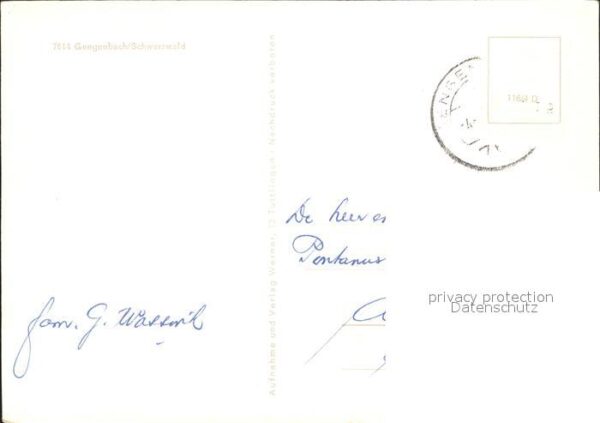 7614 Gengenbach/Schwarzwald
Aufnahme und Verlag Werner, 72 Tuttlingen · Nachdruck verboten
De heer en
Pontanus
privacy protection
Datenschutz
fam. G. Wassink